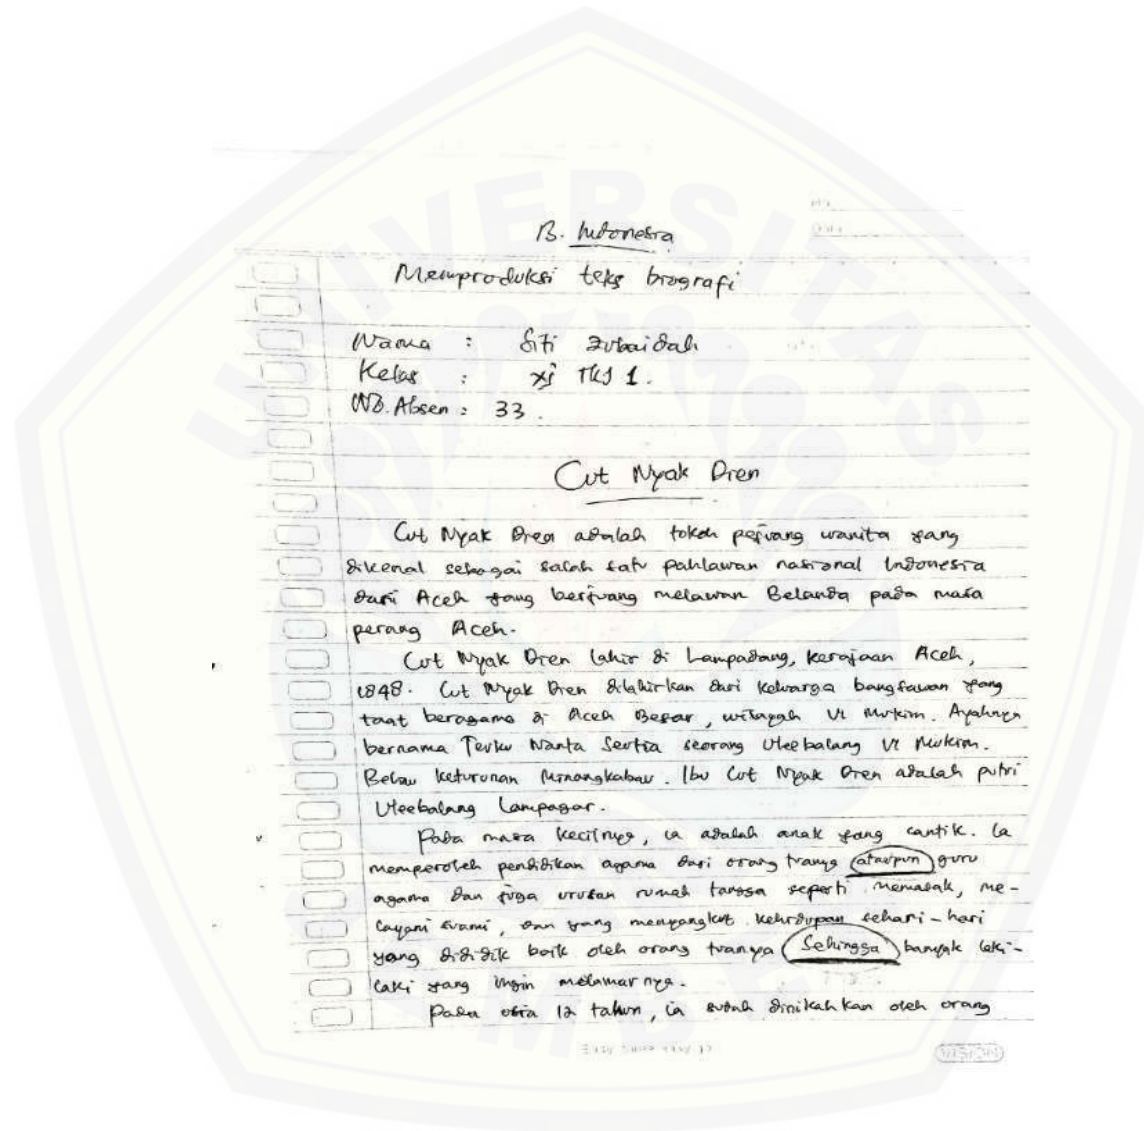 B. Indonesia
Memproduksi teks biografi
Nama : Siti Zubaidah
Kelas : XI TKJ 1.
NO. Absen : 33.
Cut Nyak Dien
Cut Nyak Dien adalah tokoh pejuang wanita yang
dikenal sebagai salah satu pahlawan nasional Indonesia
dari Aceh yang berjuang melawan Belanda pada masa
perang Aceh.
Cut Nyak Dien lahir di Lampadang, kerajaan Aceh,
1848. Cut Nyak Dien dilahirkan dari keluarga bangsawan yang
taat beragama di Aceh Besar, wilayah VI Mukim. Ayahnya
bernama Teuku Nanta Seutia seorang Uleebalang VI Mukim.
Belau keturunan Minangkabau. Ibu Cut Nyak Dien adalah putri
Uleebalang Lampagar.
Pada masa kecilnya, ia adalah anak yang cantik. Ia
memperoleh pendidikan agama dari orang tuanya ataupun guru
agama dan juga urusan rumah tangga seperti memasak, me-
layani suami, dan yang menyangkut kehidupan sehari-hari
yang dididik baik oleh orang tuanya Sehingga banyak laki-
laki yang ingin melamarnya.
Pada usia 12 tahun, ia sudah dinikahkan oleh orang
VISION
UNIVERSITAS